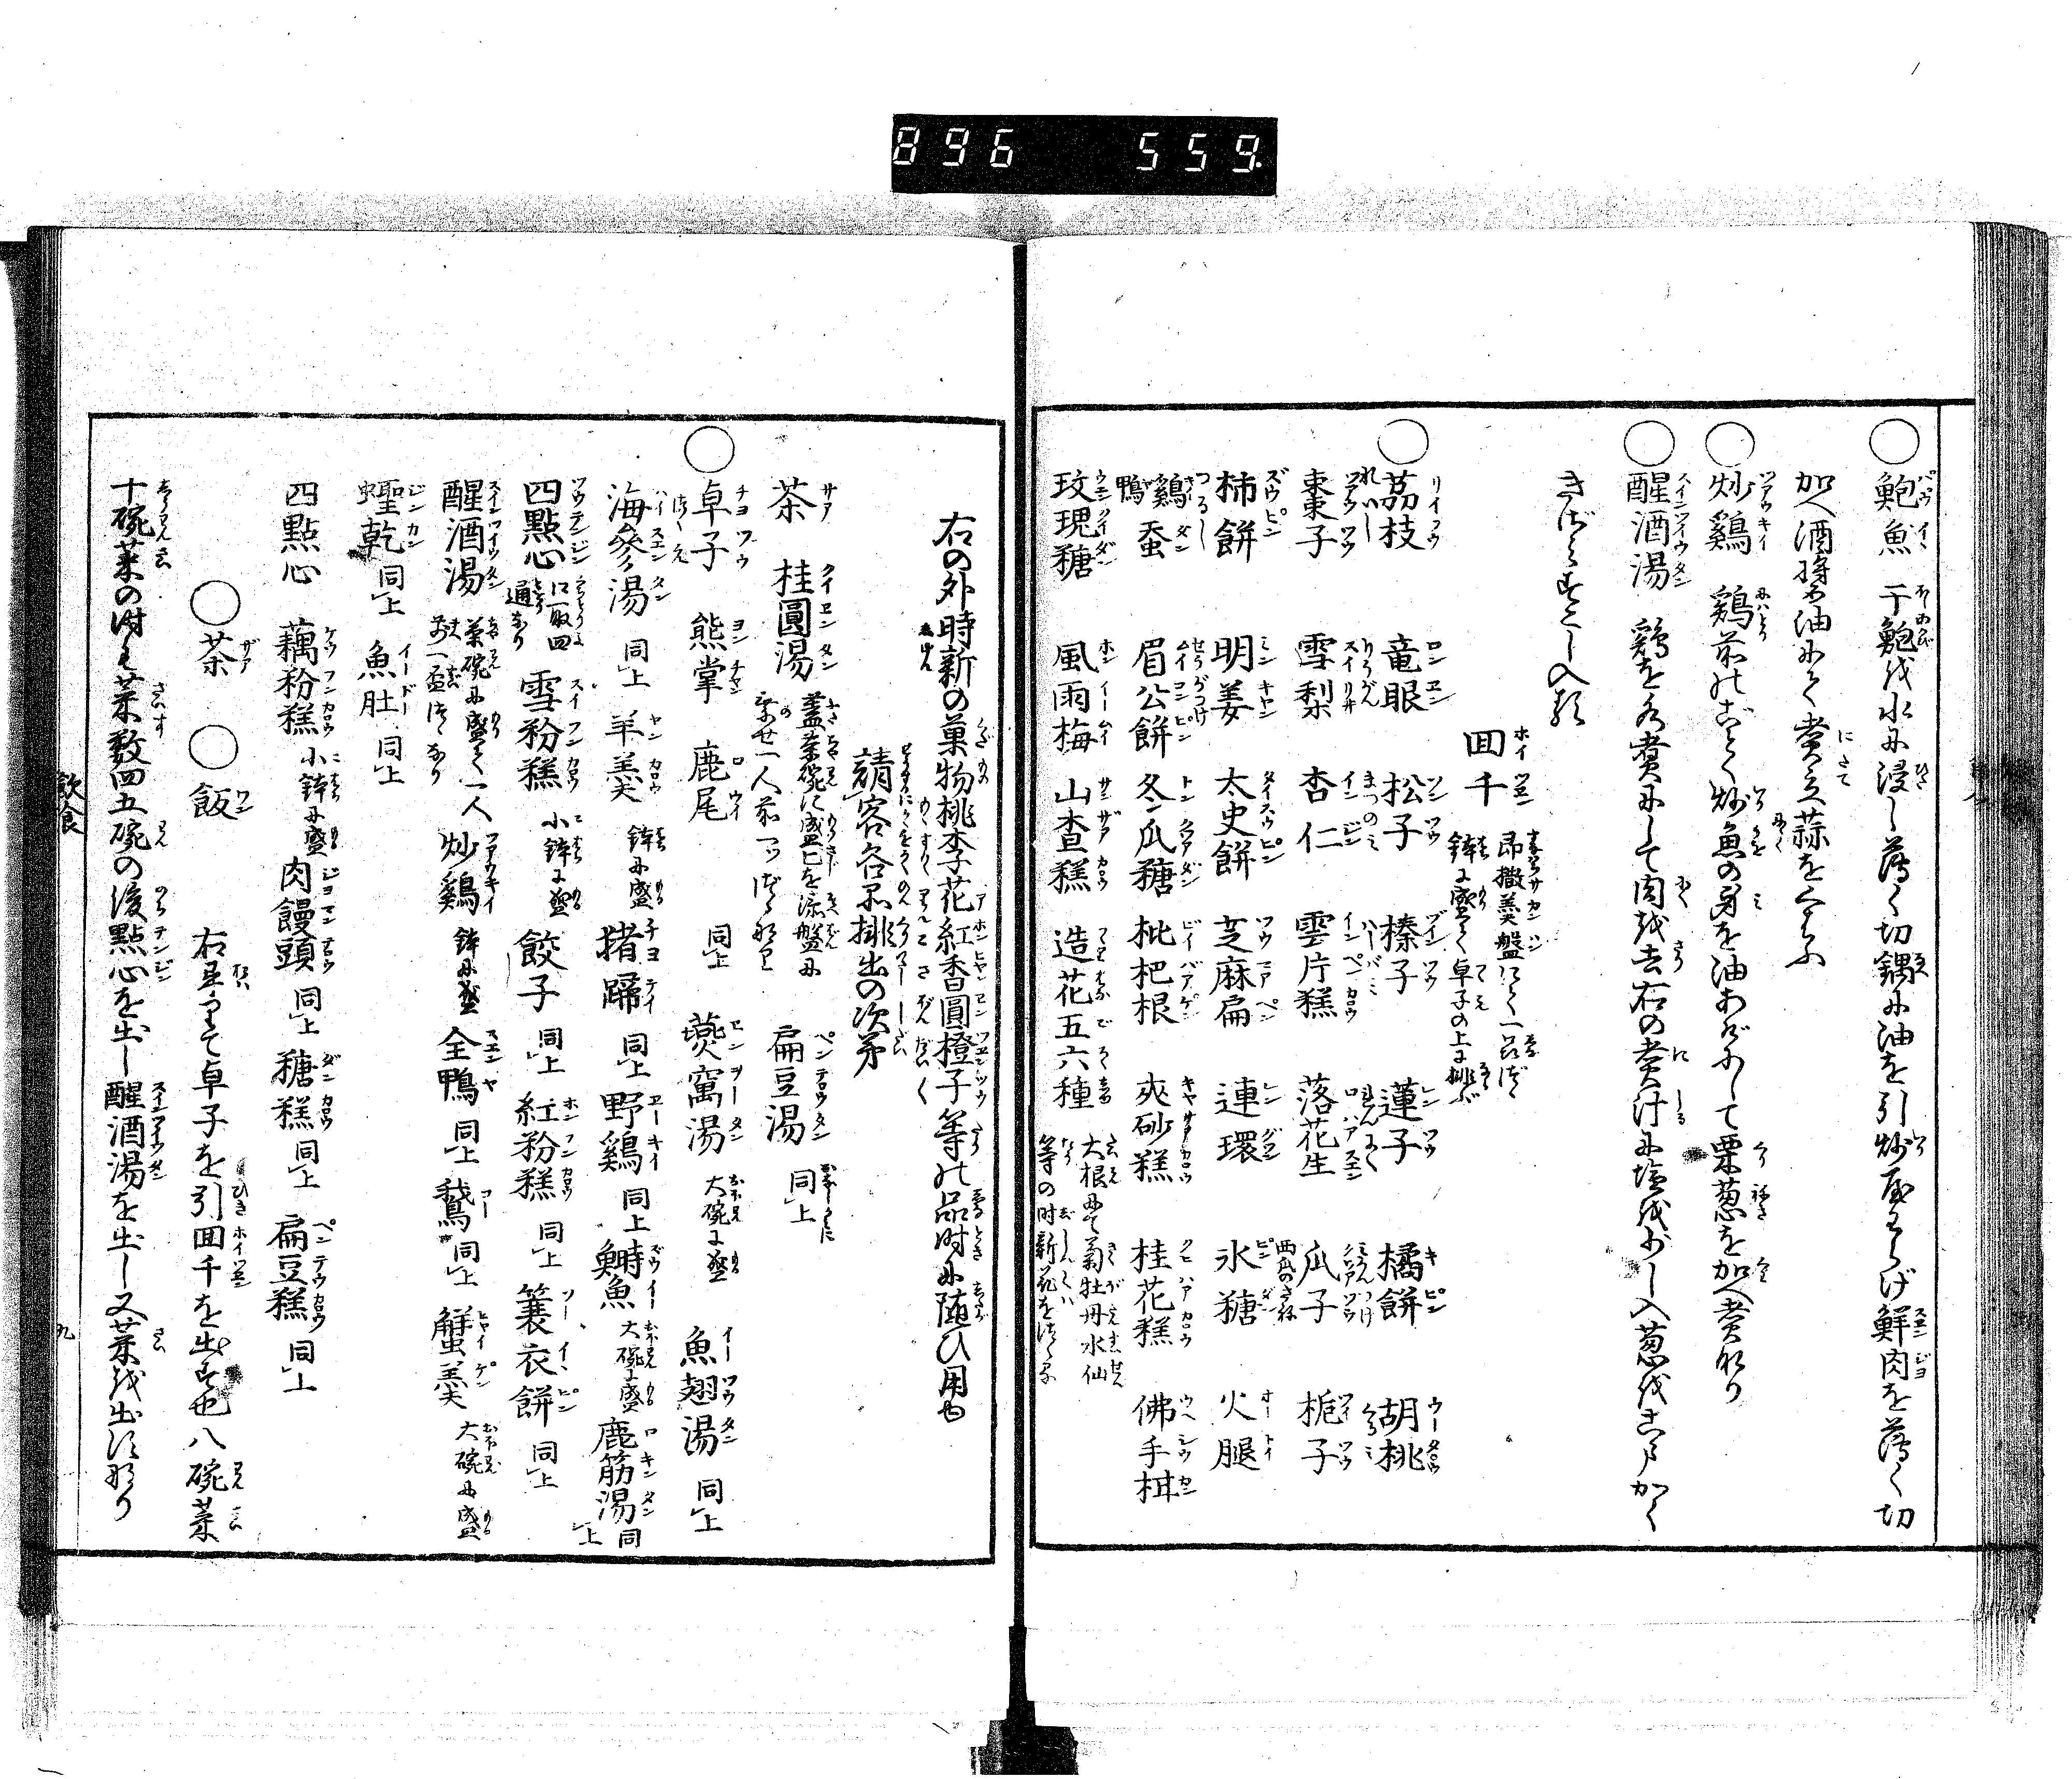 896 559.
○鮑魚 干鮑を水に浸し薄く切鍋に油を引炒尽あらげ鮮肉を薄く切
加へ酒醤油にて煮立蒜をくはふ
○炒鷄 鷄前のごとく炒魚の身を油あげにして栗葱を加へ煮なり
○醒酒湯 鷄を水煮にして肉を去右の煮汁に塩を少し入葱を
入る
囬千 昂撒羹盤にて一品づゝ
鉢に盛て卓子の上に排ぶ
○茘枝 竜眼 松子 榛子 蓮子 橘餅 胡桃
棗子 雪梨 杏仁 雲片糕 落花生 瓜子 西瓜のさね 梔子
柿餅 明姜 太史餅 芝麻扁 連環 氷糖 火腿
鷄鴨蛋 眉公餅 冬瓜糖 枇杷根 爽砂糕 桂花糕 佛手柑
玫瑰糖 風雨梅 山査糕 造花五六種 大根にて菊牡丹水仙
等の時新花をつくる
右の外時新の菓物桃李花紅香圓橙子等の品時に随ひ用ゆ
請客各品排出の次第
茶 桂圓湯 蓋茶碗に盛匕を添盤に
のせ一人前一ツづゝなり 扁豆湯 同上
○卓子 熊掌 鹿尾 同上 燕窩湯 大碗に盛 魚翅湯 同上
海參湯 同上 羊羹 鉢に盛 猪蹄 同上 野鷄 同上 鰣魚 大碗に盛 鹿筋湯 同上
四點心 口取四
通なり 雪粉糕 小鉢に盛 餃子 同上 紅粉糕 同上 簑衣餅 同上
醒酒湯 茶碗に盛て一人
前一盃づゝなり 炒鷄 鉢に盛 全鴨 同上 鵞 同上 蟹羹 大碗に盛
蟶乾 同上 魚肚 同上
四點心 藕粉糕 小鉢に盛 肉饅頭 同上 糖糕 同上 扁豆糕 同上
○茶 ○飯 右畢りて卓子を引囬千を出す也八碗菜
十碗菜の時も菜数四五碗の後點心を出し醒酒湯を出し又菜を出すなり
飲食
九